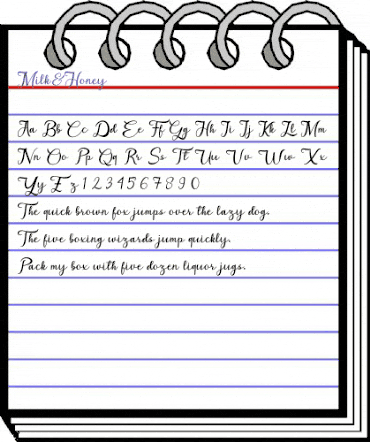 Milk&Honey
Aa Bb Cc Dd Ee Ff Gg Hh Ii Jj Kk Ll Mm
Nn Oo Pp Qq Rr Ss Tt Uu Vv Ww Xx
Yy Zz 1 2 3 4 5 6 7 8 9 0
The quick brown fox jumps over the lazy dog.
The five boxing wizards jump quickly.
Pack my box with five dozen liquor jugs.